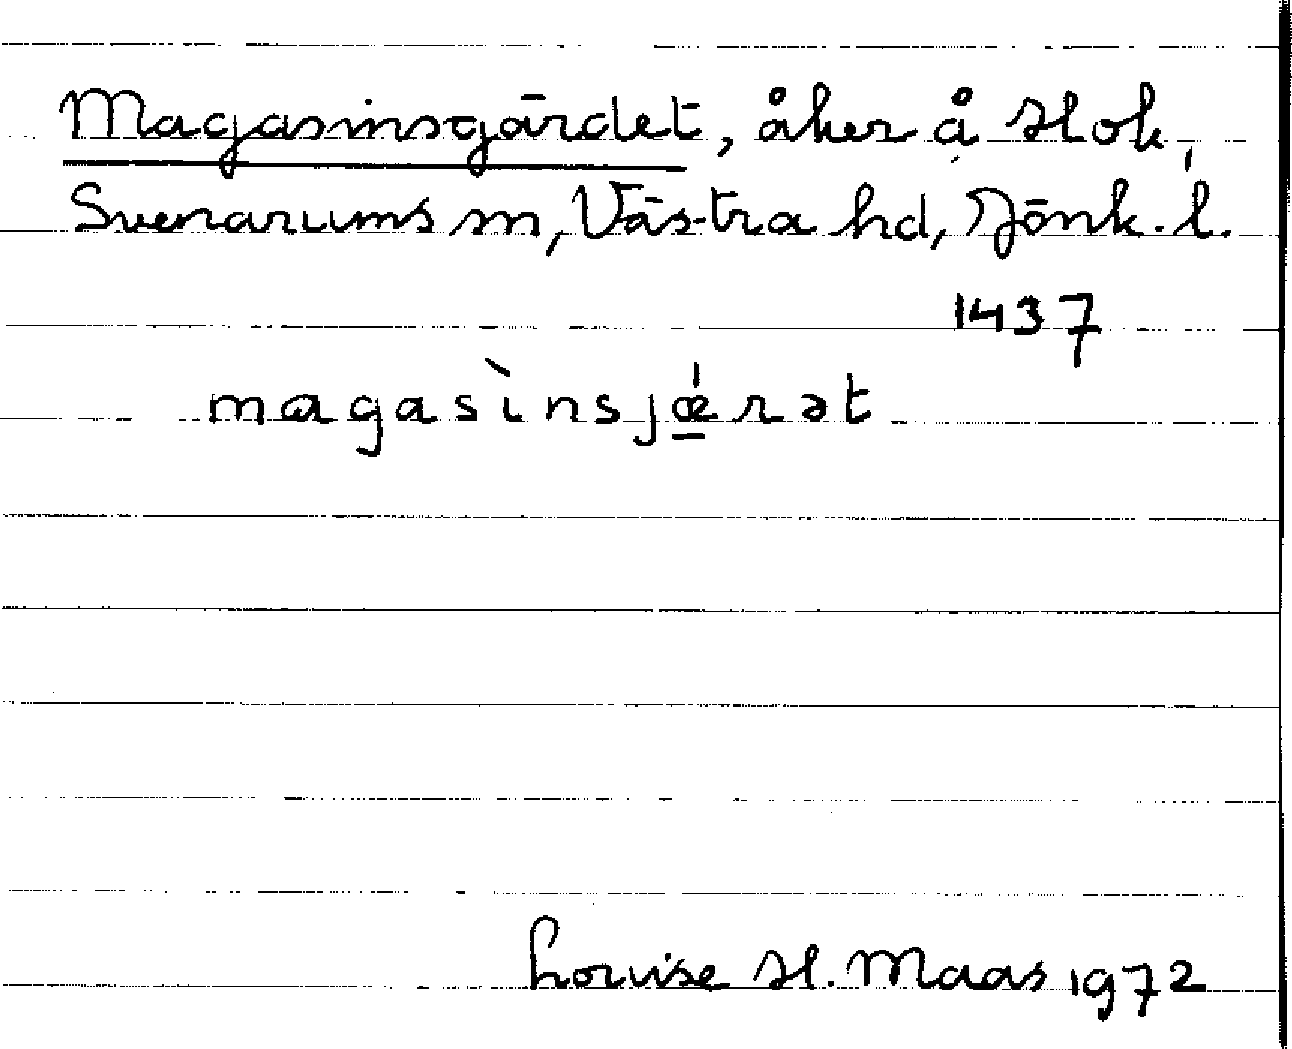 Magasinsgärdet, åker å Hok,
Svenarums sn, Västra hd, Jönk. l.
1437
magasìnsjǽ̱rət
Louise H. Maas 1972